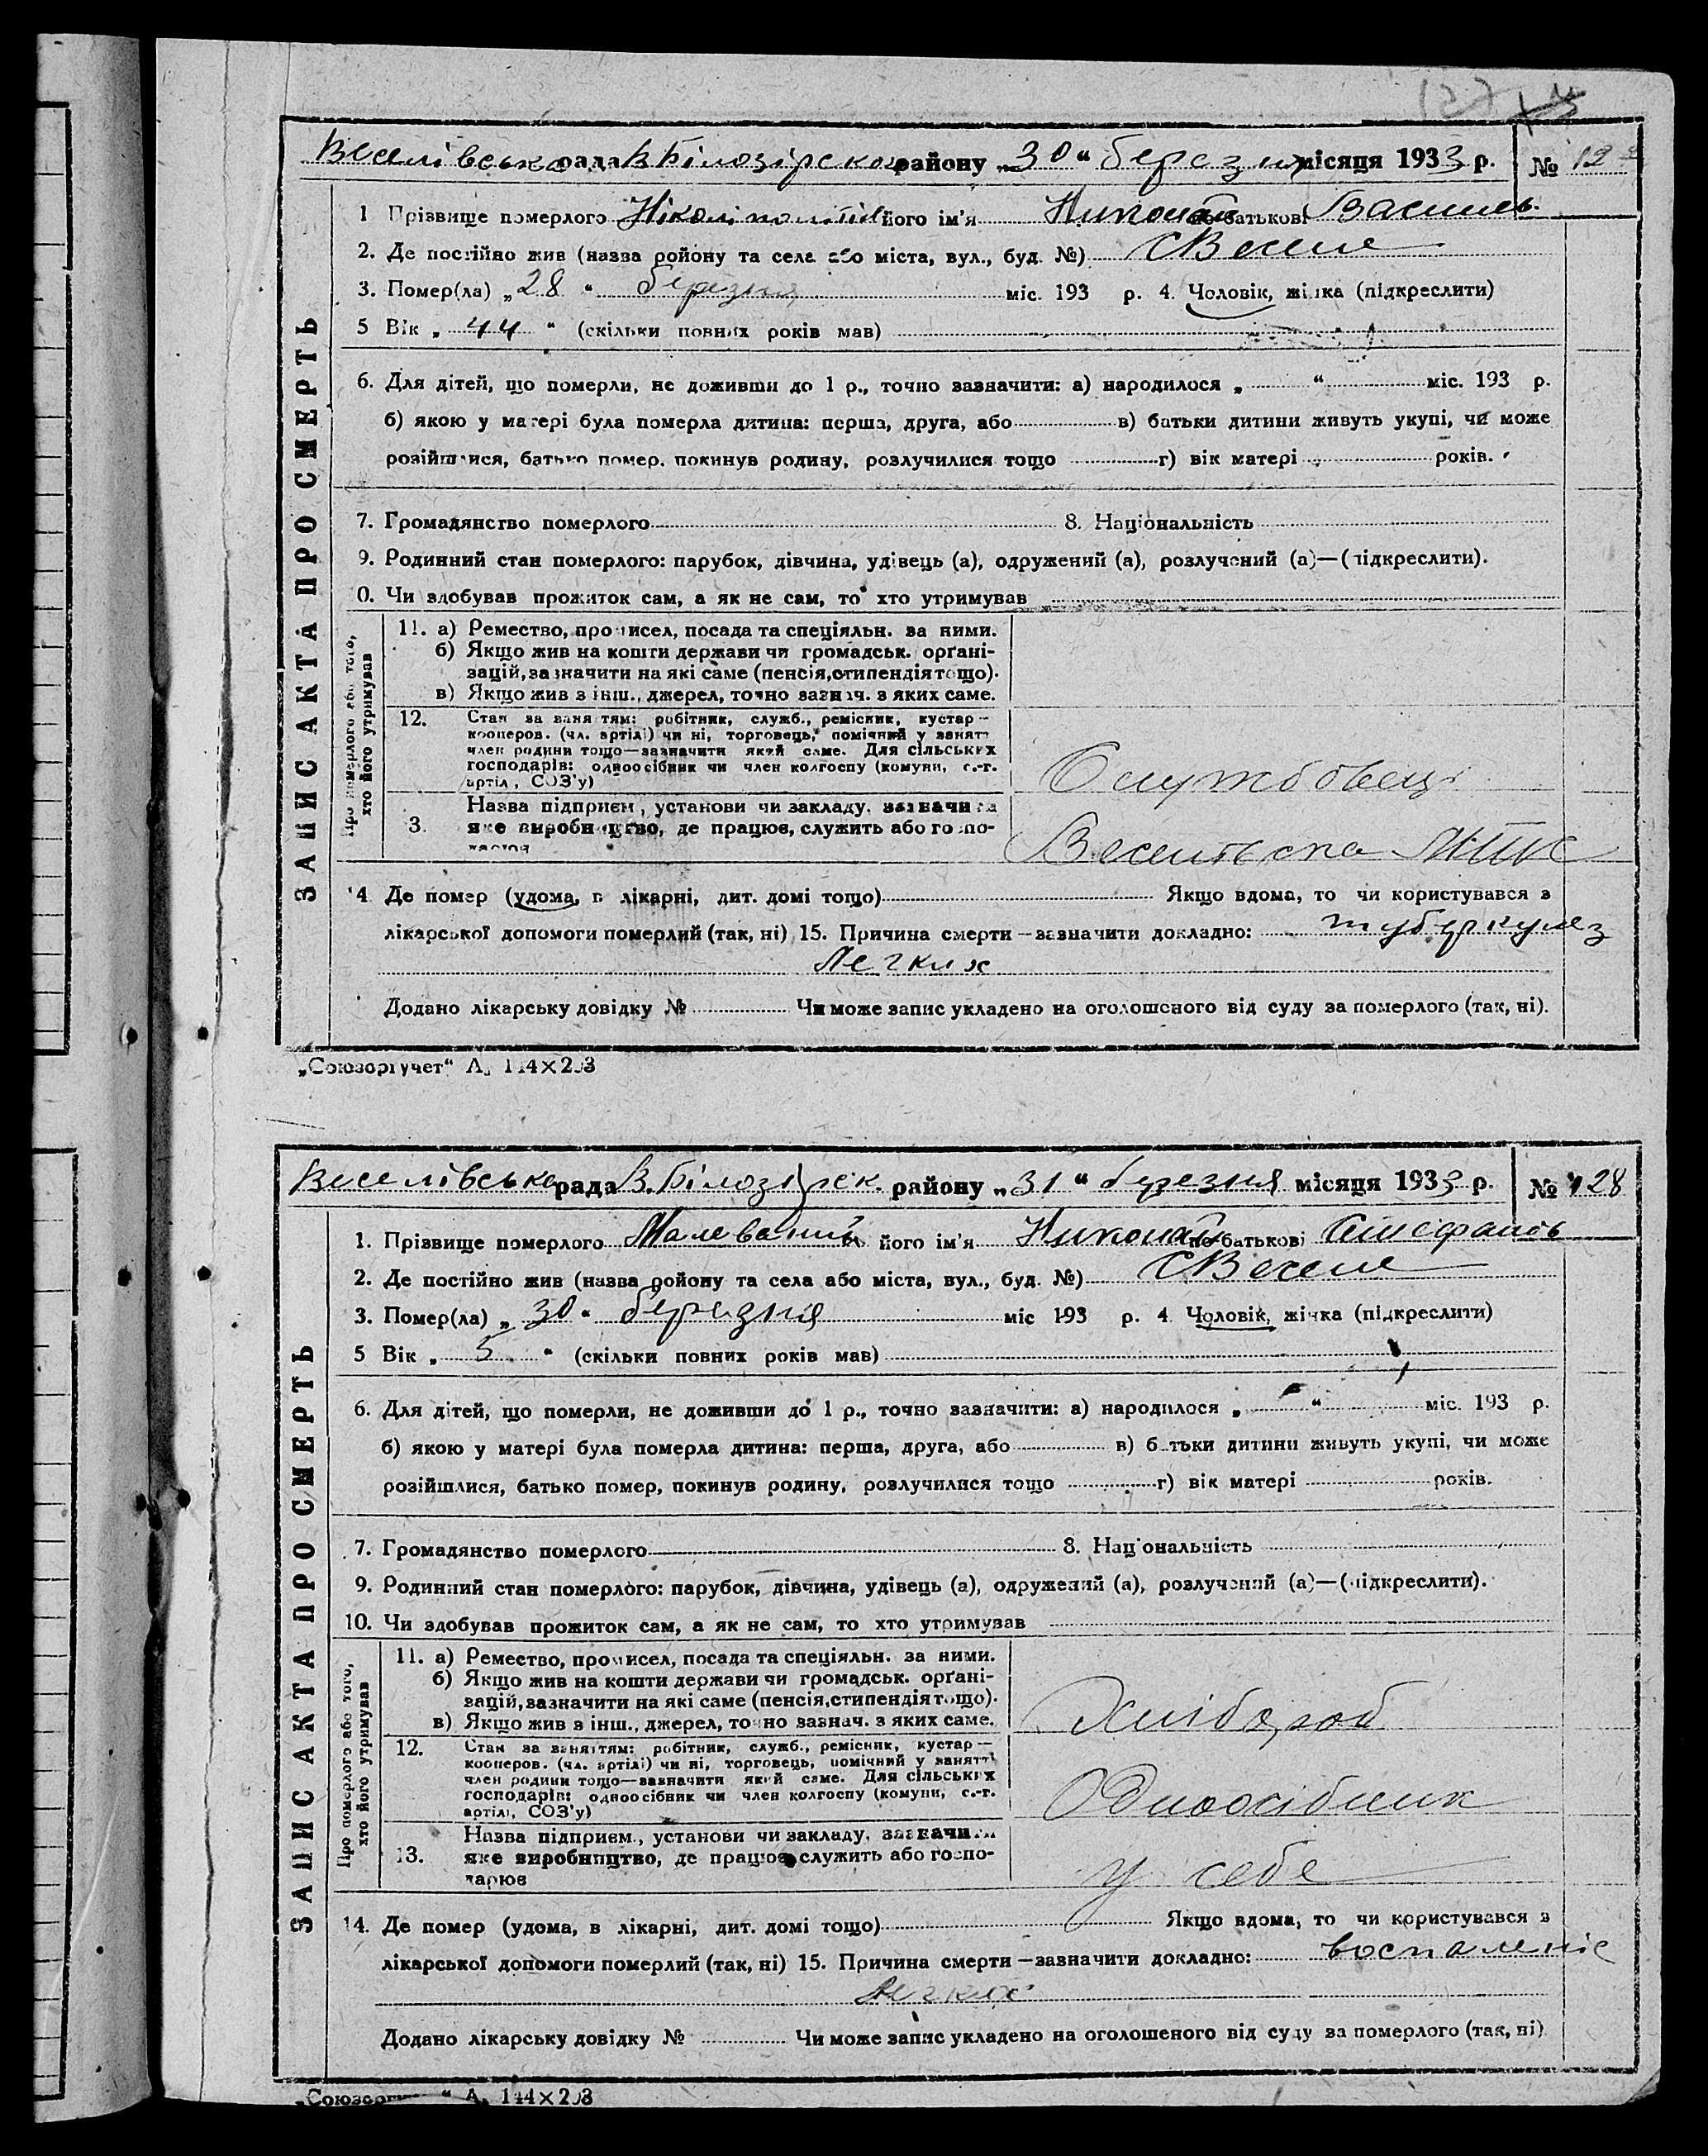 Веселівська рада В Білозірськ району „30“ березня місяця 1933 р. № 12
1 Прізвище померлого його ім'я Николай по батькові Василь.
2. Де постійно жив (назва ройону та села або міста, вул., буд. №) С Веселе
3. Помер(ла) „28“ березня міс. 193 р. 4. Чоловік, жінка (підкреслити)
5 Вік „44“ (скільки повних років мав)
6. Для дітей, що померли, не доживши до 1 р., точно зазначити: а) народилося „ “ міс. 193 р.
б) якою у матері була померла дитина: перша, друга, або в) батьки дитини живуть укупі, чи може
розійшлися, батько помер, покинув родину, розлучилися тощо г) вік матері років.
7. Громадянство померлого 8. Національність
9. Родинний стан померлого: парубок, дівчина, удівець (а), одружений (а), розлучений (а)—(підкреслити).
0. Чи здобував прожиток сам, а як не сам, то хто утримував
ЗАПИС АКТА ПРО СМЕРТЬ
Про померлого або того,
хто його утримував
11. а) Ремество, промисел, посада та спеціяльн. за ними.
б) Якщо жив на кошти держави чи громадськ. орґані-
зацій, зазначити на які саме (пенсія, стипендія тощо).
в) Якщо жив з інш., джерел, точно зазнач. з яких саме.
12. Стан за заняттям: робітник, служб., ремісник, кустар—
кооперов. (чл. артілі) чи ні, торговець, помічний у занятт
член родини тощо—зазначити який саме. Для сільських
господарів: одноосібник чи член колгоспу (комуни, с.-г.
артілі, СОЗ'у) Службовець
Назва підприєм., установи чи закладу, зазначити
3. яке виробництво, де працює, служить або госпо-
дарює Веселівська МТС
14 Де помер (удома, в лікарні, дит. домі тощо) Якщо вдома, то чи користувався з
лікарської допомоги померлий (так, ні) 15. Причина смерти—зазначити докладно: туберкульз
Легких
Додано лікарську довідку № Чи може запис укладено на оголошеного від суду за померлого (так, ні).
„Союзоргучет“ А. 144×203
Веселівська рада В. Білозірськ. району „31“ березня місяця 1933 р. № 128
1. Прізвище померлого Малеваний його ім'я Николай по батькові
2. Де постійно жив (назва ройону та села або міста, вул., буд. №) С Веселе
3. Помер(ла) „30“ березня міс 193 р. 4 Чоловік, жінка (підкреслити)
5 Вік „5“ (скільки повних років мав)
6. Для дітей, що померли, не доживши до 1 р., точно зазначити: а) народилося „ “ міс. 193 р.
б) якою у матері була померла дитина: перша, друга, або в) батьки дитини живуть укупі, чи може
розійшлися, батько помер, покинув родину, розлучилися тощо г) вік матері років.
7. Громадянство померлого 8. Національність
9. Родинний стан померлого: парубок, дівчина, удівець (а), одружений (а), розлучений (а)—(підкреслити).
10. Чи здобував прожиток сам, а як не сам, то хто утримував
ЗАПИС АКТА ПРО СМЕРТЬ
Про померлого або того,
хто його утримував
11. а) Ремество, промисел, посада та спеціяльн. за ними.
б) Якщо жив на кошти держави чи громадськ. орґані-
зацій, зазначити на які саме (пенсія, стипендія тощо).
в) Якщо жив з інш., джерел, точно зазнач. з яких саме. Хлібороб
12. Стан за заняттям: робітник, служб., ремісник, кустар—
кооперов. (чл. артілі) чи ні, торговець, помічний у занятті
член родини тощо—зазначити який саме. Для сільських
господарів: одноосібник чи член колгоспу (комуни, с.-г.
артілі, СОЗ'у) Одноосібник
Назва підприєм., установи чи закладу, зазначити
13. яке виробництво, де працює, служить або госпо-
дарює у себе
14. Де помер (удома, в лікарні, дит. домі тощо) Якщо вдома, то чи користувався з
лікарської допомоги померлий (так, ні) 15. Причина смерти—зазначити докладно: воспаленіє
легких
Додано лікарську довідку № Чи може запис укладено на оголошеного від суду за померлого (так, ні)
А. 144×203